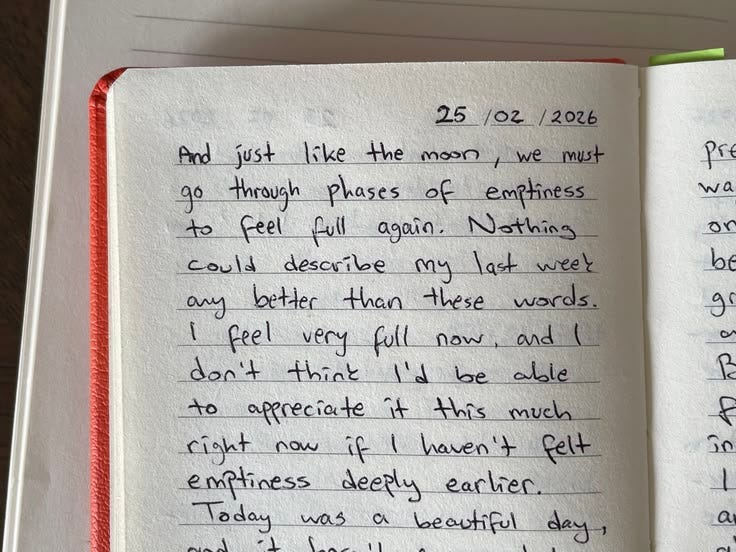 25/02/2026
And just like the moon, we must
go through phases of emptiness
to feel full again. Nothing
could describe my last week
any better than these words.
I feel very full now, and I
don't think I'd be able
to appreciate it this much
right now if I haven't felt
emptiness deeply earlier.
Today was a beautiful day,
and it